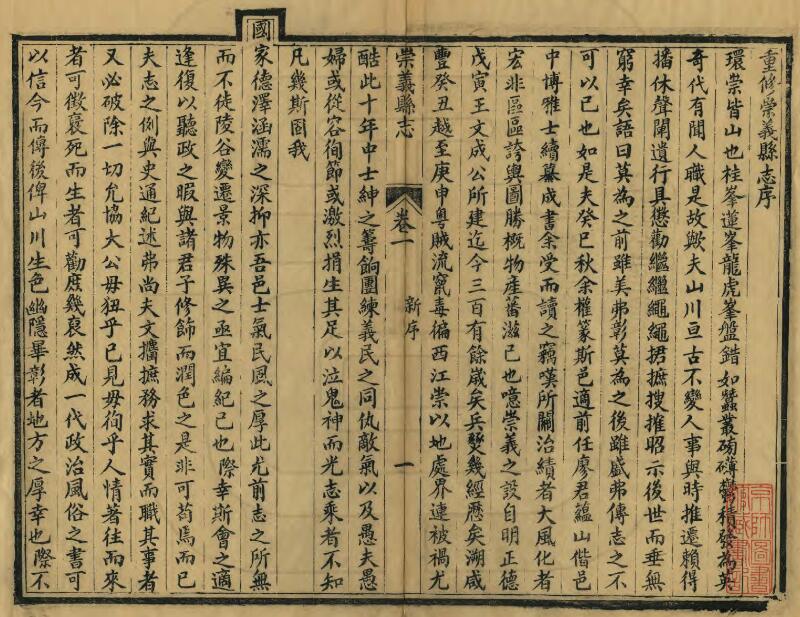 重修崇義縣志序
環崇皆山也桂峯蓮峯龍虎峯盤錯如蠶叢磅礴鬱積發為英
奇代有聞人職是故歟夫山川亘古不變人事與時推遷賴得
播休聲闡遺行具懲勸繼繼繩繩捃摭搜搉昭示後世而垂無
窮幸矣語曰莫為之前雖美弗彰莫為之後雖盛弗傳志之不
可以已也如是夫癸巳秋余權篆斯邑適前任廖君藴山偕邑
中博雅士續纂成書余受而讀之竊嘆所關治績者大風化者
宏非區區誇輿圖勝概物產蕃滋已也噫崇義之設自明正德
戊寅王文成公所建迄今三百有餘歲矣兵變幾經歷矣溯咸
豐癸丑越至庚申粵賊流竄毒徧西江崇以地處界連被禍尤
崇義縣志
卷一
新序
一
酷此十年中士紳之籌餉團練義民之同仇敵氣以及愚夫愚
婦或從容徇節或激烈捐生其足以泣鬼神而光志乘者不知
凡幾斯固我
國家德澤涵濡之深抑亦吾邑士氣民風之厚此尤前志之所無
而不徒陵谷變遷景物殊異之亟宜編紀已也際幸斯會之適
逢復以聽政之暇與諸君子修飾而潤色之是非可苟焉而已
夫志之例與史通紀述弗尚夫文擩摭務求其實而職其事者
又必破除一切允協大公毋狃乎已見毋徇乎人情著往而來
者可徵褒死而生者可勸庶幾裒然成一代政治風俗之書可
以信今而傳後俾山川生色幽隱畢彰者地方之厚幸也際不